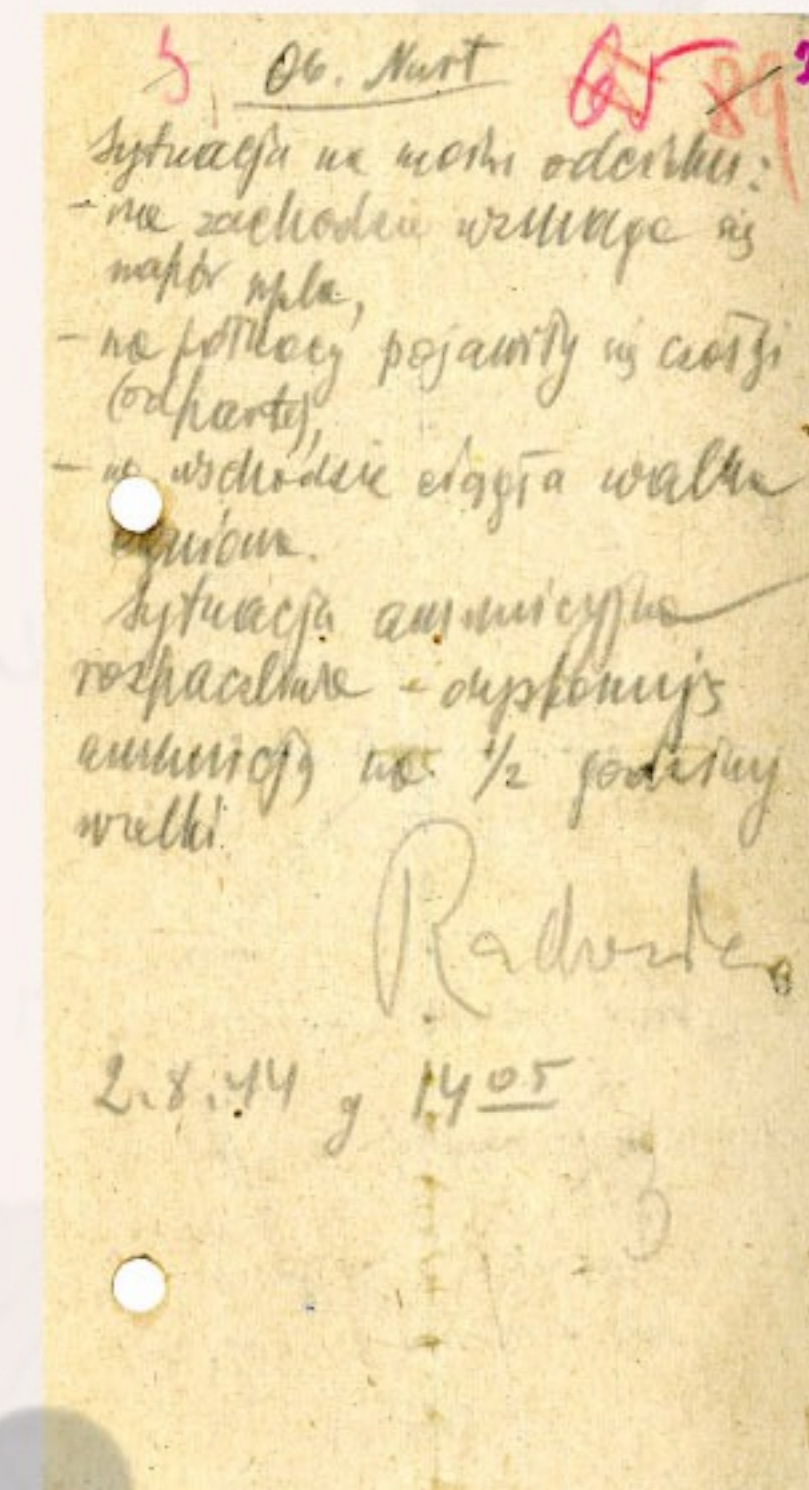 5 Ob. Nurt 89
Sytuacja na moim odcinku:
- na zachodzie wzmaga się
napór npla,
- na północy pojawiły się czołgi
(odparte),
- na wschodzie ciągła walka
ogniowa.
Sytuacja amunicyjna
rozpaczliwa - dysponuję
amunicją na 1/2 godziny
walki.
Radosław
2.8.44 g 14 05
3